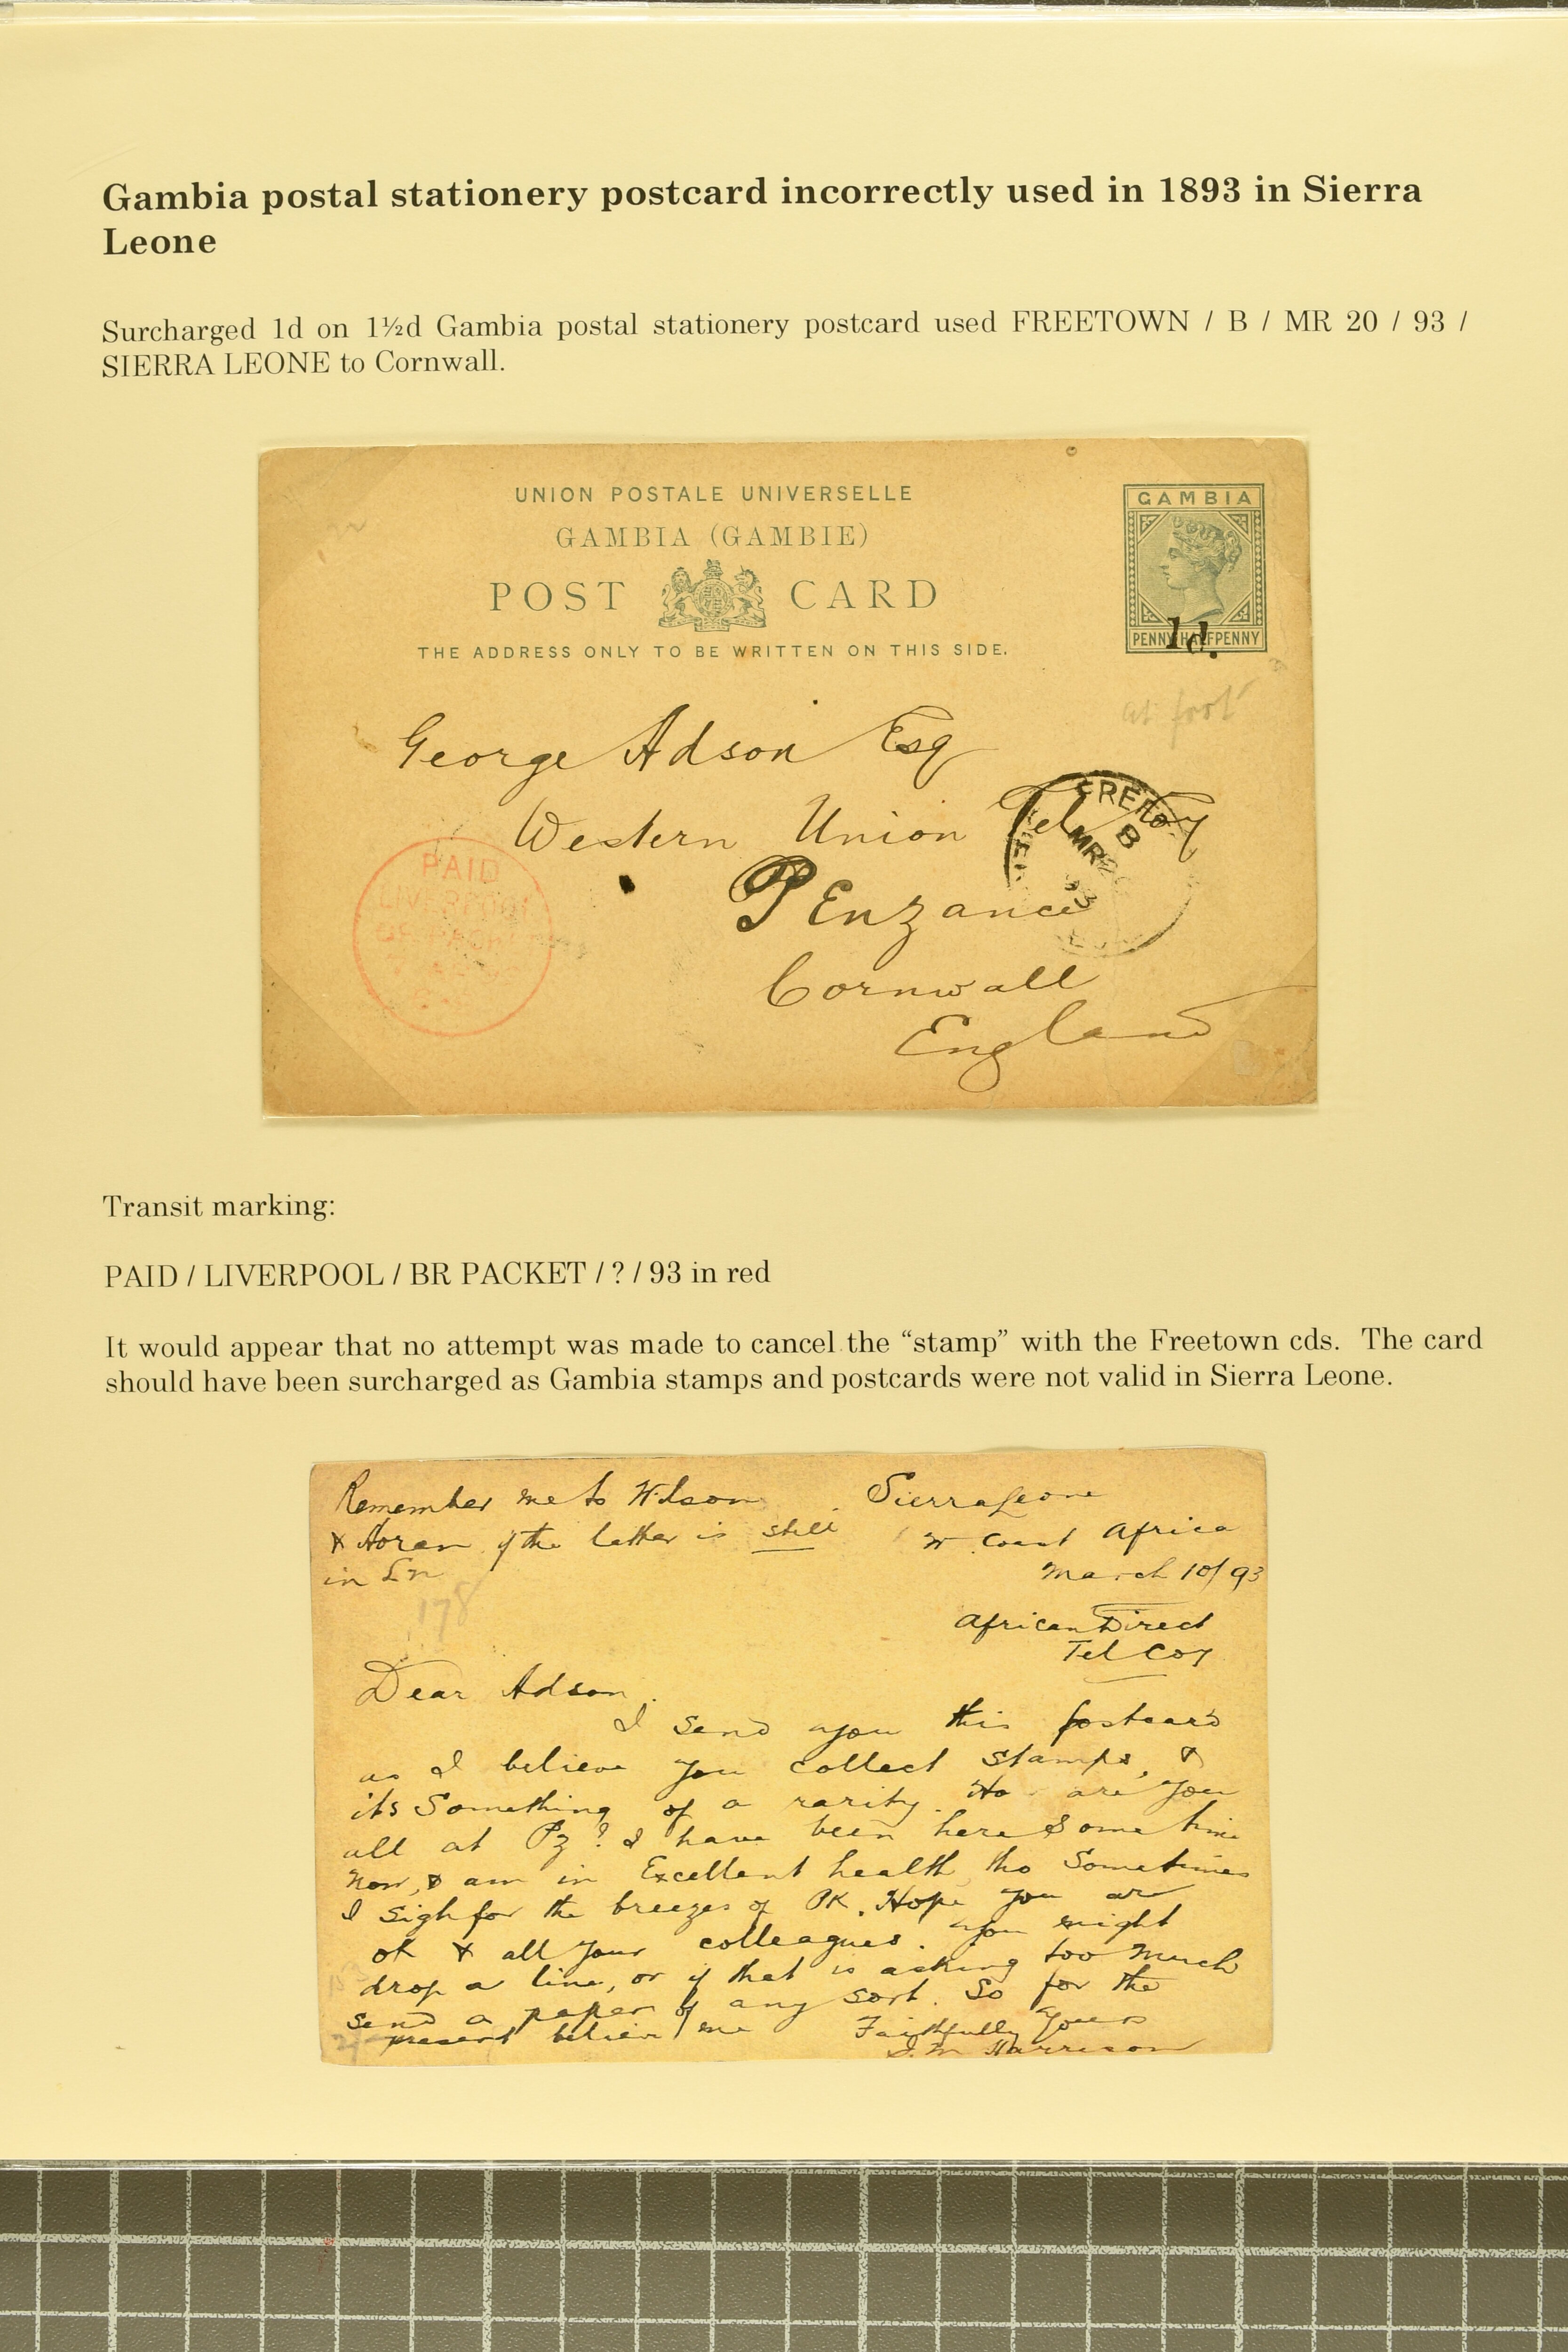 Gambia postal stationery postcard incorrectly used in 1893 in Sierra
Leone
Surcharged 1d on 1½d Gambia postal stationery postcard used FREETOWN / B / MR 20 / 93 /
SIERRA LEONE to Cornwall.
UNION POSTALE UNIVERSELLE
GAMBIA (GAMBIE)
POST CARD
THE ADDRESS ONLY TO BE WRITTEN ON THIS SIDE.
GAMBIA
PENNY HALFPENNY
1d.
at foot
George Adson Esq
Western Union Tel Coy
Penzance
Cornwall
England
FREETO
B
MR 2
93
PAID
LIVERPOOL
BR PACKET
Transit marking:
PAID / LIVERPOOL / BR PACKET / ? / 93 in red
It would appear that no attempt was made to cancel the “stamp” with the Freetown cds. The card
should have been surcharged as Gambia stamps and postcards were not valid in Sierra Leone.
Remember me to Wilson
& Horan if the latter is still
in Ln
178
Sierra Leone
W Coast Africa
March 10/93
African Direct
Tel Coy
Dear Adson.
I send you this postcard
as I believe you collect stamps, &
its Something of a rarity. Ho are you
all at Pz? I have been here Some time
now, & am in Excellent health, tho Sometimes
I Sigh for the breezes of PK. Hope you are
ok & all your colleagues. You might
drop a line, or if that is asking too much
send a paper of any sort. So for the
present believe me Faithfully Yours
Harrison